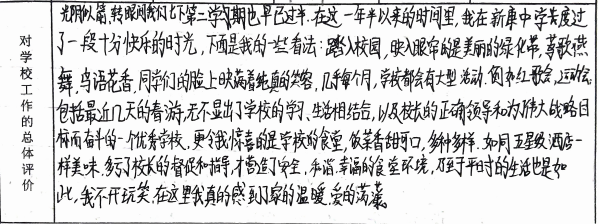 对学校工作的总体评价
光阴似箭,转眼间我们七下第二学习期也早已过半。在这一年半以来的时间里,我在新康中学度过
了一段十分快乐的时光,下面是我的一些看法:踏入校园,映入眼帘的是美丽的绿化带,莺歌燕
舞,鸟语花香,同学们的脸上映满着纯真的笑容,几乎每个月,学校都会有大型活动.例如红歌会,运动会
包括最近几天的春游,无不显出了学校的学习、生活相结合,以及校长的正确领导和为伟大战略目
标而奋斗的一个优秀学校.更令我惊喜的是学校的食堂,饭菜香甜可口,多种多样.如同五星级酒店一
样美味.多亏了校长的督促和指导,才营造了安全,和谐,幸福的食堂环境,乃至于平时的生活也是如
此,我不开玩笑,在这里我真的感到了家的温暖,爱的满载